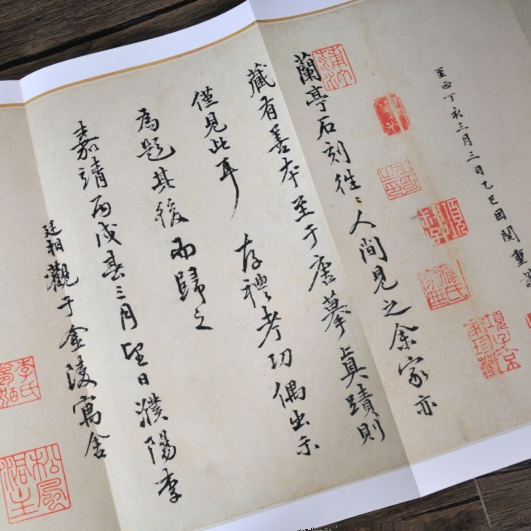 至正丁亥三月三日乙巳因閱重
蘭亭石刻往〻人間見之余家亦
藏有善本至于唐摹眞蹟則
僅見此耳 存禮考功偶出示
為題其後而歸之
嘉靖丙戌春三月望日濮陽李
廷相觀于金陵寓舍